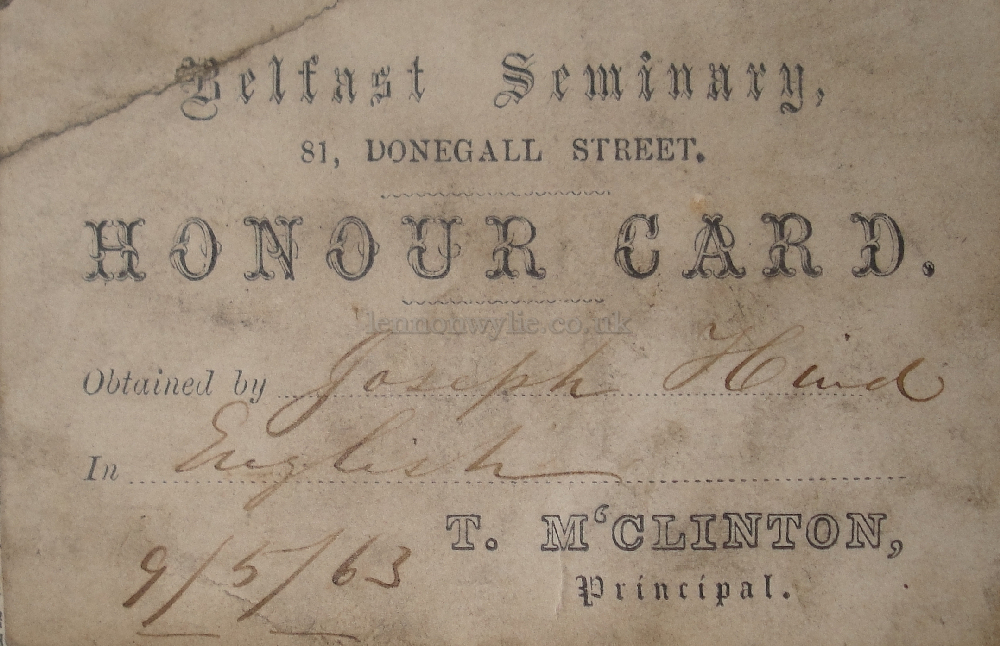 Belfast Seminary,
81, DONEGALL STREET.
HONOUR CARD.
lennonwylie.co.uk
Obtained by Joseph Hind
In English
T. M‘CLINTON,
Principal.
9/5/63